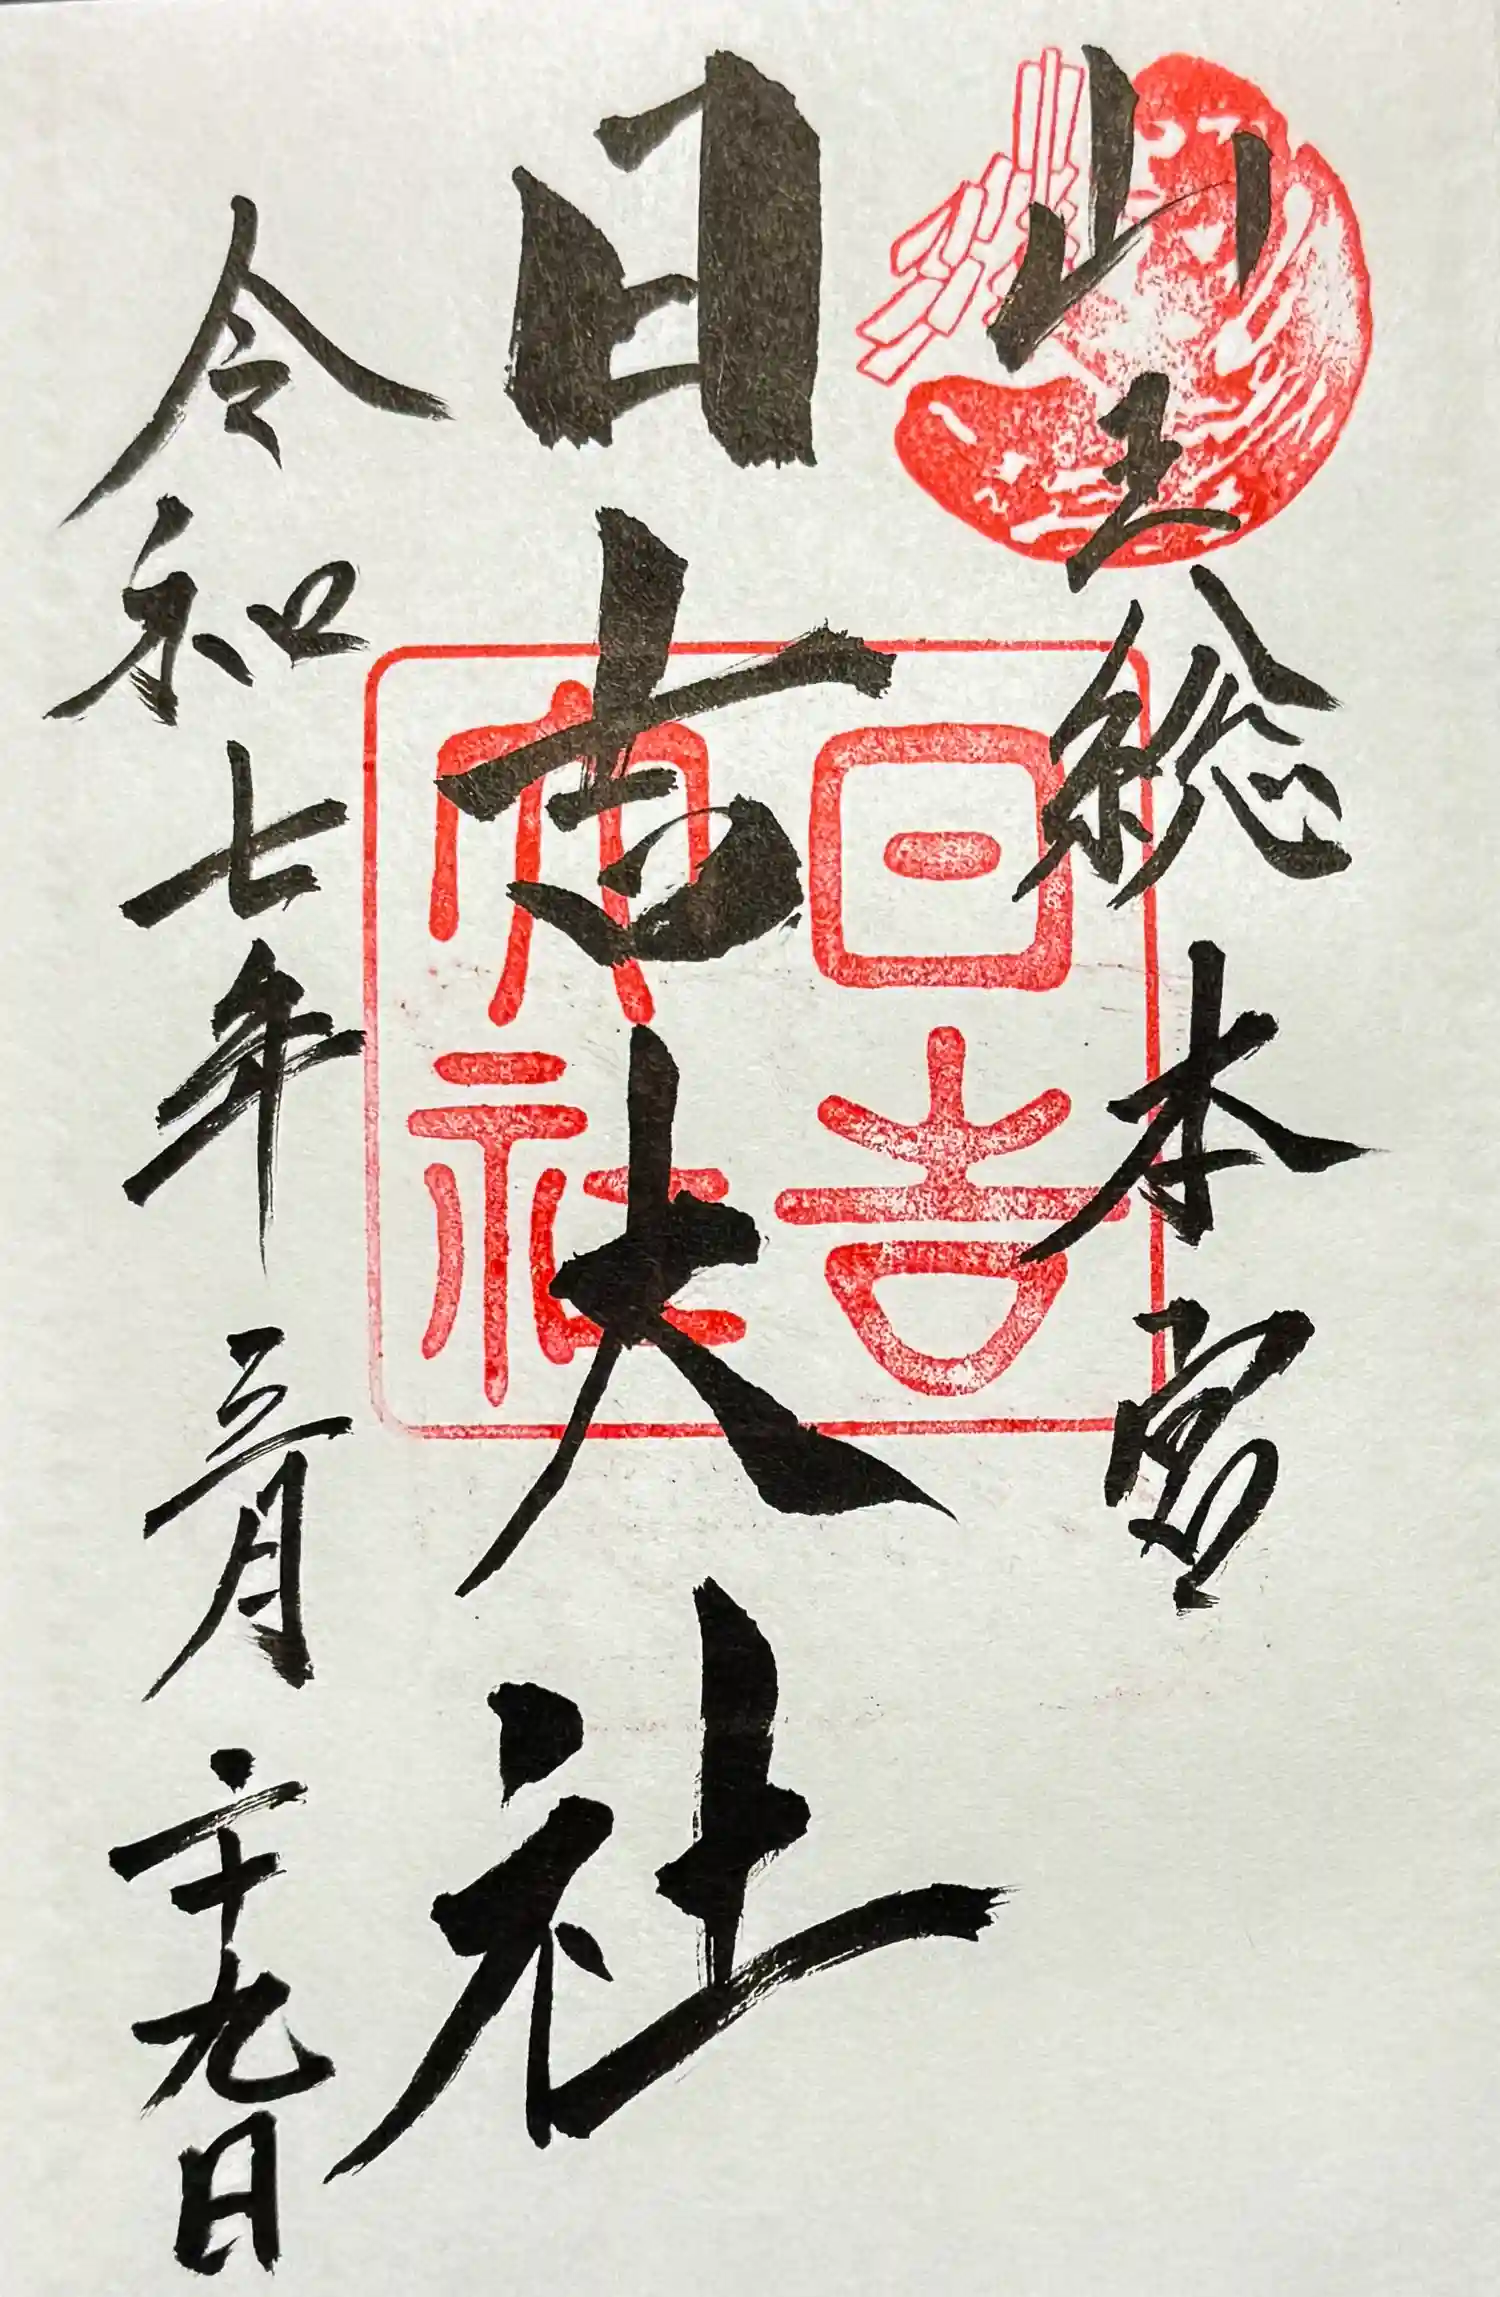 山王総本宮
日吉大社
令和七年三月二十九日
日吉
大社